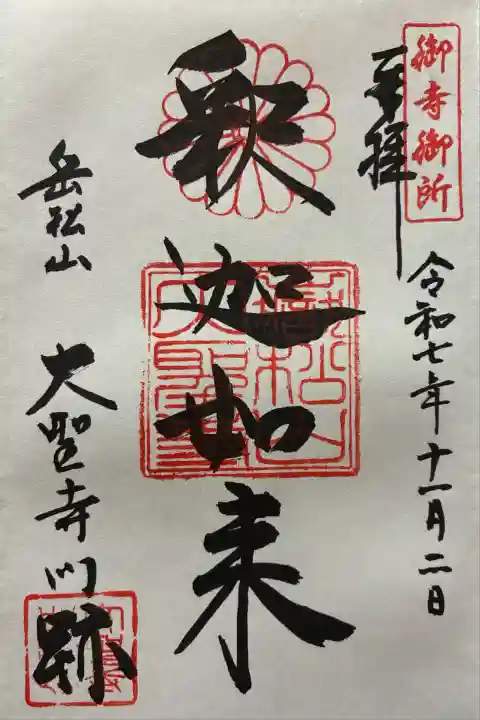 御寺御所
奉拝
令和七年十一月二日
釈迦如来
岳松山
大聖寺門跡